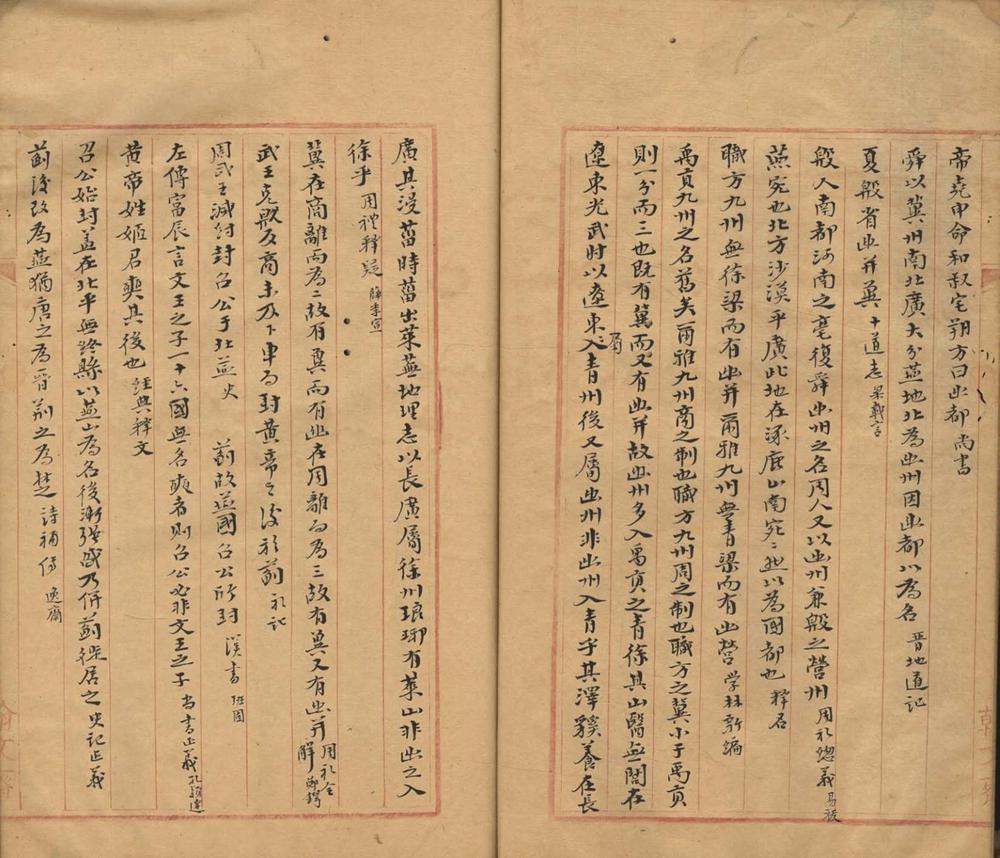 帝堯申命和叔宅朔方曰幽都 尚書
舜以冀州南北廣大分燕地北為幽州因幽都以為名 晋地道记
夏殷省幽并冀 十道志 梁載言
殷人南都河南之亳復舜幽州之名周人又以幽州兼殷之營州 周礼總義 易祓
燕宛也北方沙漠平廣此地在涿鹿山南宛宛然以為國都也 釋名
職方九州無徐梁而有幽并爾雅九州無青梁而有幽營 学林新編
禹貢九州之名舊矣爾雅九州商之制也職方九州周之制也職方之冀小于禹貢
則一分而三也既有冀而又有幽并故幽州多入禹贡之青徐其山醫無閭在
遼東光武时以遼東入青州後又屬幽州非幽州入青乎其澤貕養在長
屬
廣其浸菑時菑出萊蕪地理志以長廣屬徐州琅琊有萊山非幽之入
徐乎 周禮釋疑 薛季宣
冀在商離而為二故有冀而有幽在周離而為三故有冀又有幽并 周礼全解 鄭鍔
武王克殷反商未及下車而封黄帝之後於薊 礼记
周武王滅紂封召公于北燕 史 薊故燕國召公所封 漢書 班固
左傳富辰言文王之子一十六國無名奭者則召公必非文王之子 尚書正義 孔穎達
黄帝姓姬君奭其後也 經典釋文
召公始封蓋在北平無終縣以燕山為名後漸强盛乃併薊徙居之 史記正義
薊後改為燕猶唐之為晉荊之為楚 詩補傳 逸齋